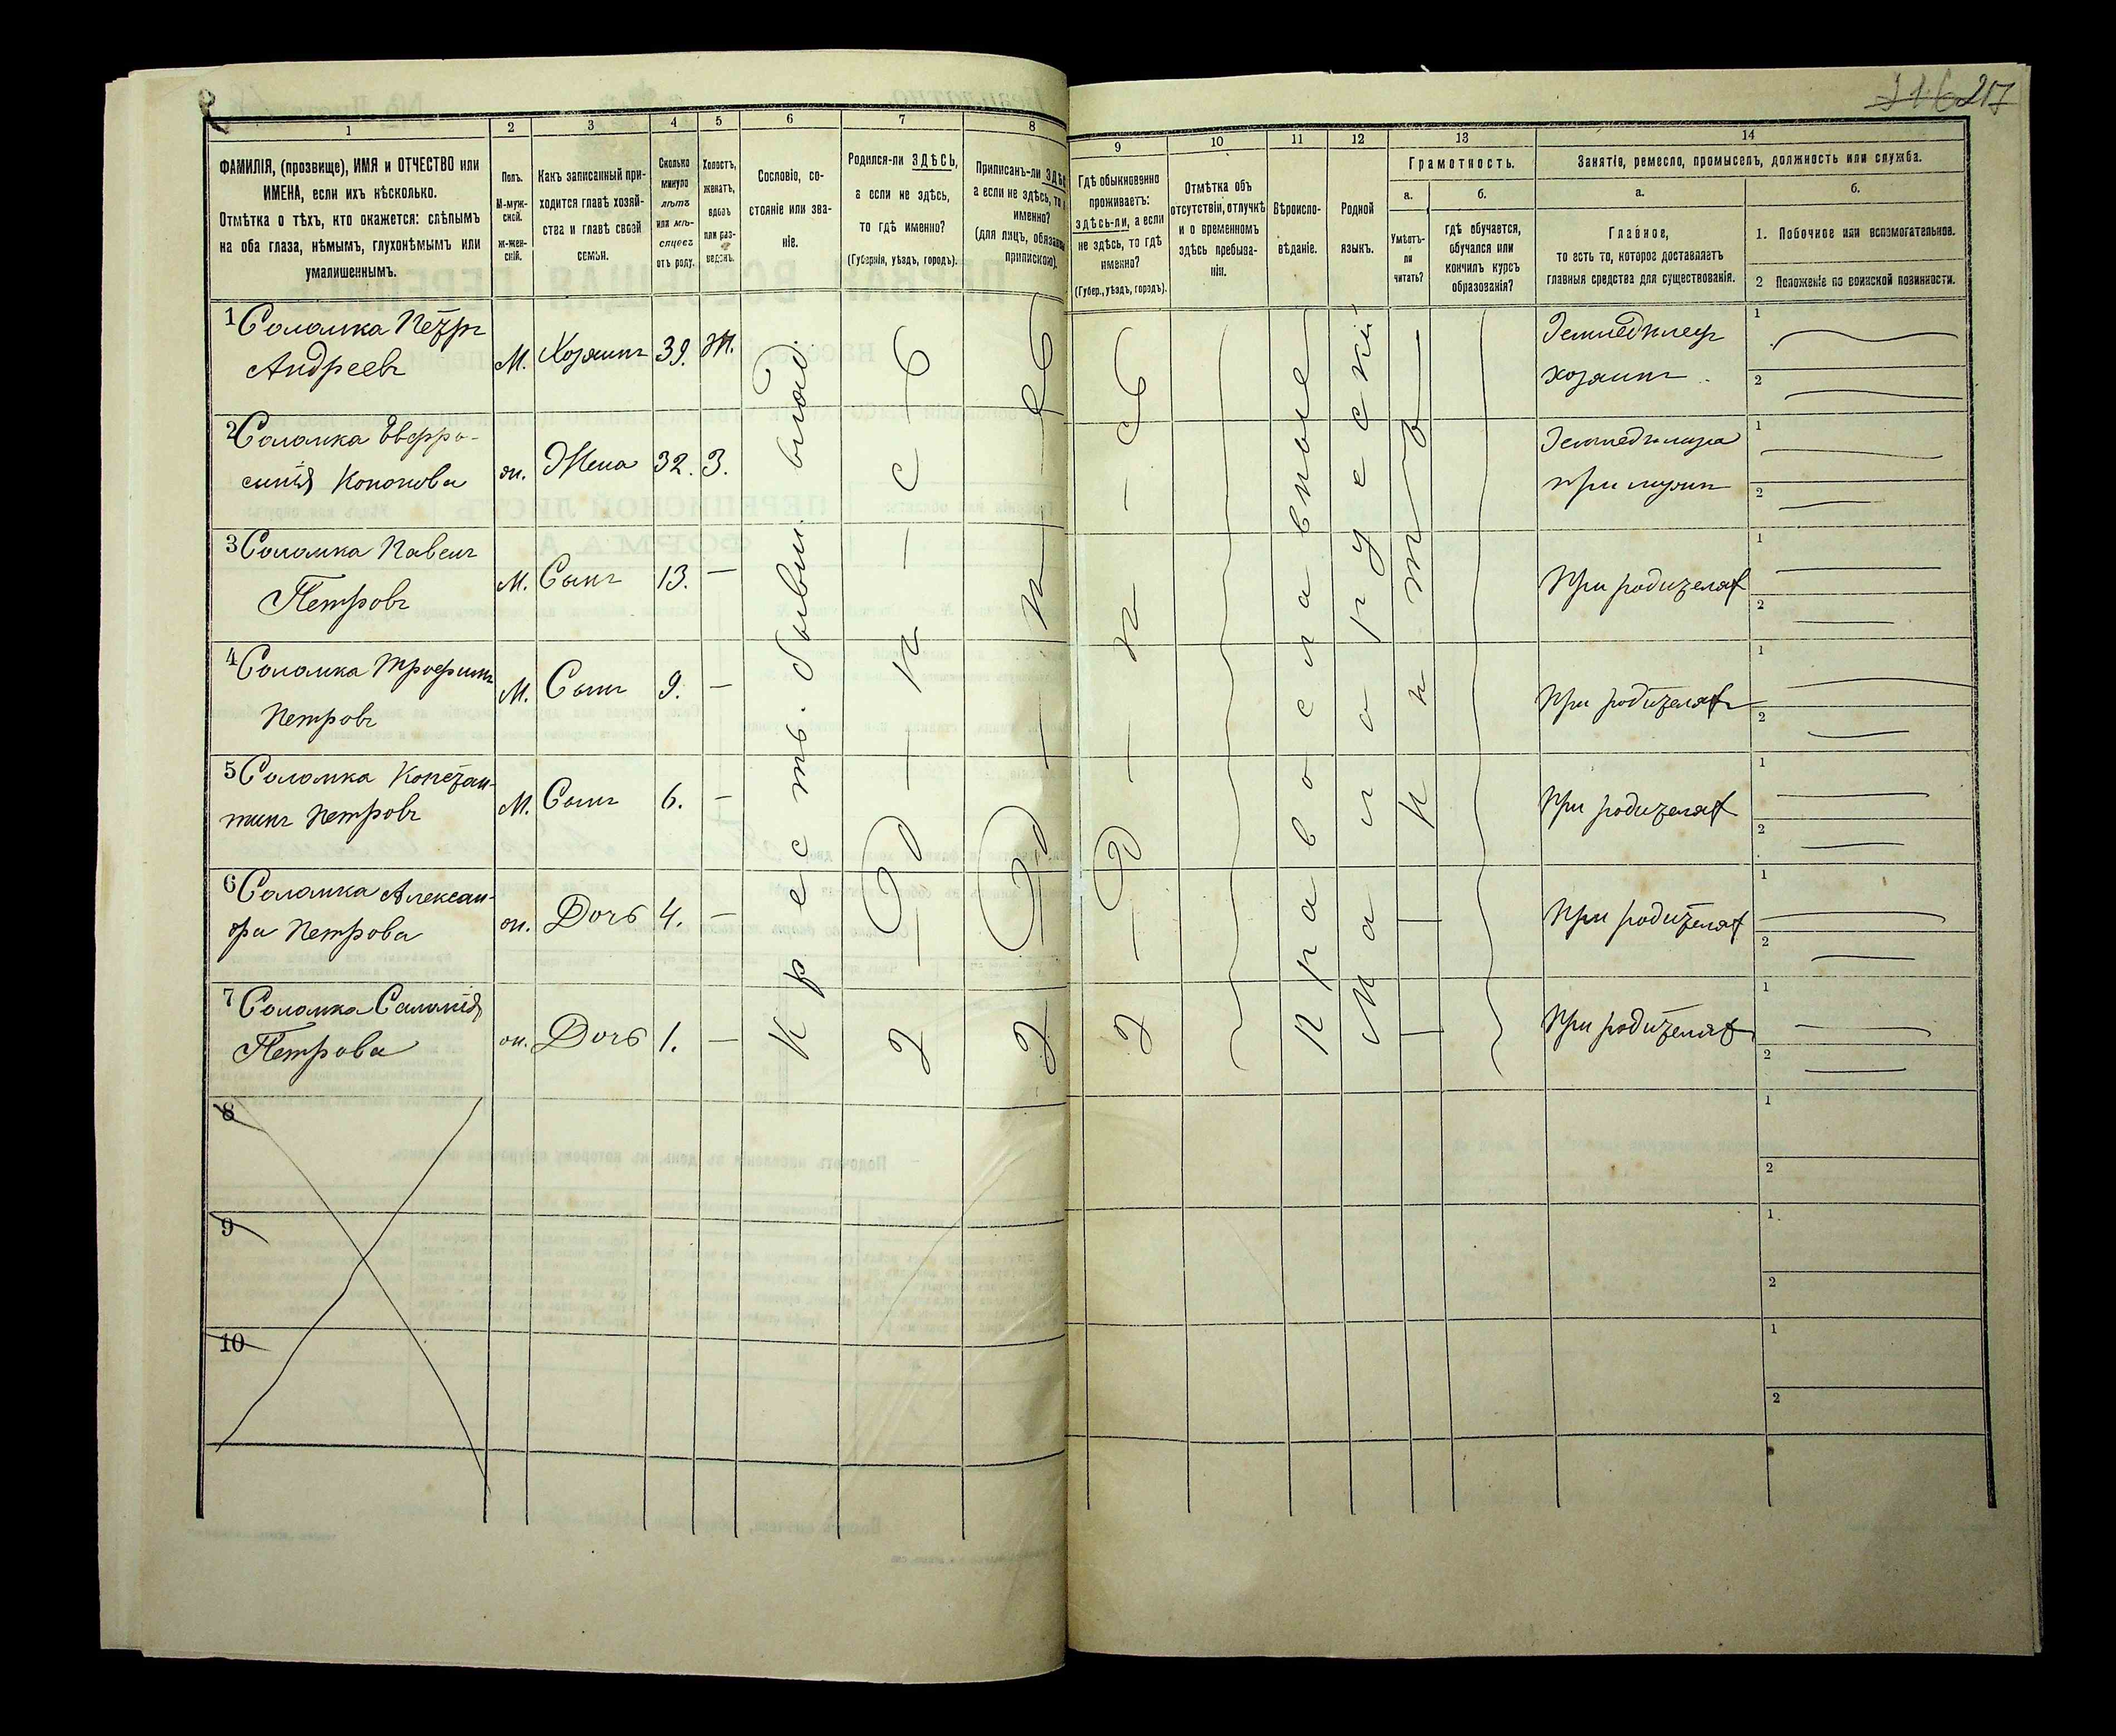 216 217
1
2
3
4
5
6
7
8
9
10
11
12
13
14
ФАМИЛІЯ, (прозвище), ИМЯ и ОТЧЕСТВО или
ИМЕНА, если ихъ нѣсколько.
Отмѣтка о тѣхъ, кто окажется: слѣпымъ
на оба глаза, нѣмымъ, глухонѣмымъ или
умалишеннымъ.
Полъ.
М-муж-
ской.
Ж-жен-
скій.
Какъ записанный при-
ходится главѣ хозяй-
ства и главѣ своей
семьи.
Сколько
минуло
лѣтъ
или мѣ-
сяцевъ
отъ роду.
Холостъ,
женатъ,
вдовъ
или раз-
веденъ.
Сословіе, со-
стояніе или зва-
ніе.
Родился-ли ЗДѢСЬ,
а если не здѣсь,
то гдѣ именно?
(Губернія, уѣздъ, городъ).
Приписанъ-ли
а если не здѣсь, то
именно?
(для лицъ,
припискою).
Гдѣ обыкновенно
проживаетъ:
здѣсь-ли, а если
не здѣсь, то гдѣ
именно?
(Губер., уѣздъ, городъ).
Отмѣтка объ
отсутствіи, отлучкѣ
и о временномъ
здѣсь пребыва-
ніи.
Вѣроиспо-
вѣданіе.
Родной
языкъ.
Грамотность.
а.
Умѣетъ-
ли
читать?
б.
гдѣ обучается,
обучался или
кончилъ курсъ
образованія?
Занятіе, ремесло, промыселъ, должность или служба.
а.
Главное,
то есть то, которое доставляетъ
главныя средства для существованія.
б.
1. Побочное или вспомогательное.
2 Положеніе по воинской повинности.
1 Соломка Петръ
Андреевъ
М. Хозяинъ 39. Ж.
Земледѣлецъ
хозяинъ
1
2
2 Соломка Евфро-
синія Кононова
ж. Жена 32. З.
Земледѣлица
при мужѣ
1
2
3 Соломка Павелъ
Петровъ
М. Сынъ 13. —
При родителяхъ
1
2
4 Соломка Трофимъ
Петровъ
М. Сынъ 9. —
При родителяхъ
1
2
5 Соломка Констан-
тинъ Петровъ
М. Сынъ 6. —
При родителяхъ
1
2
6 Соломка Алексан-
дра Петрова
ж. Дочь 4. —
При родителяхъ
1
2
7 Соломка Саломія
Петрова
ж. Дочь 1. —
При родителяхъ
1
2
Крестъ. бывш. влад.
Здѣсь
Здѣсь
Здѣсь
Православные
Малорусскій
нѣтъ
8
1
2
9
1
2
10
1
2